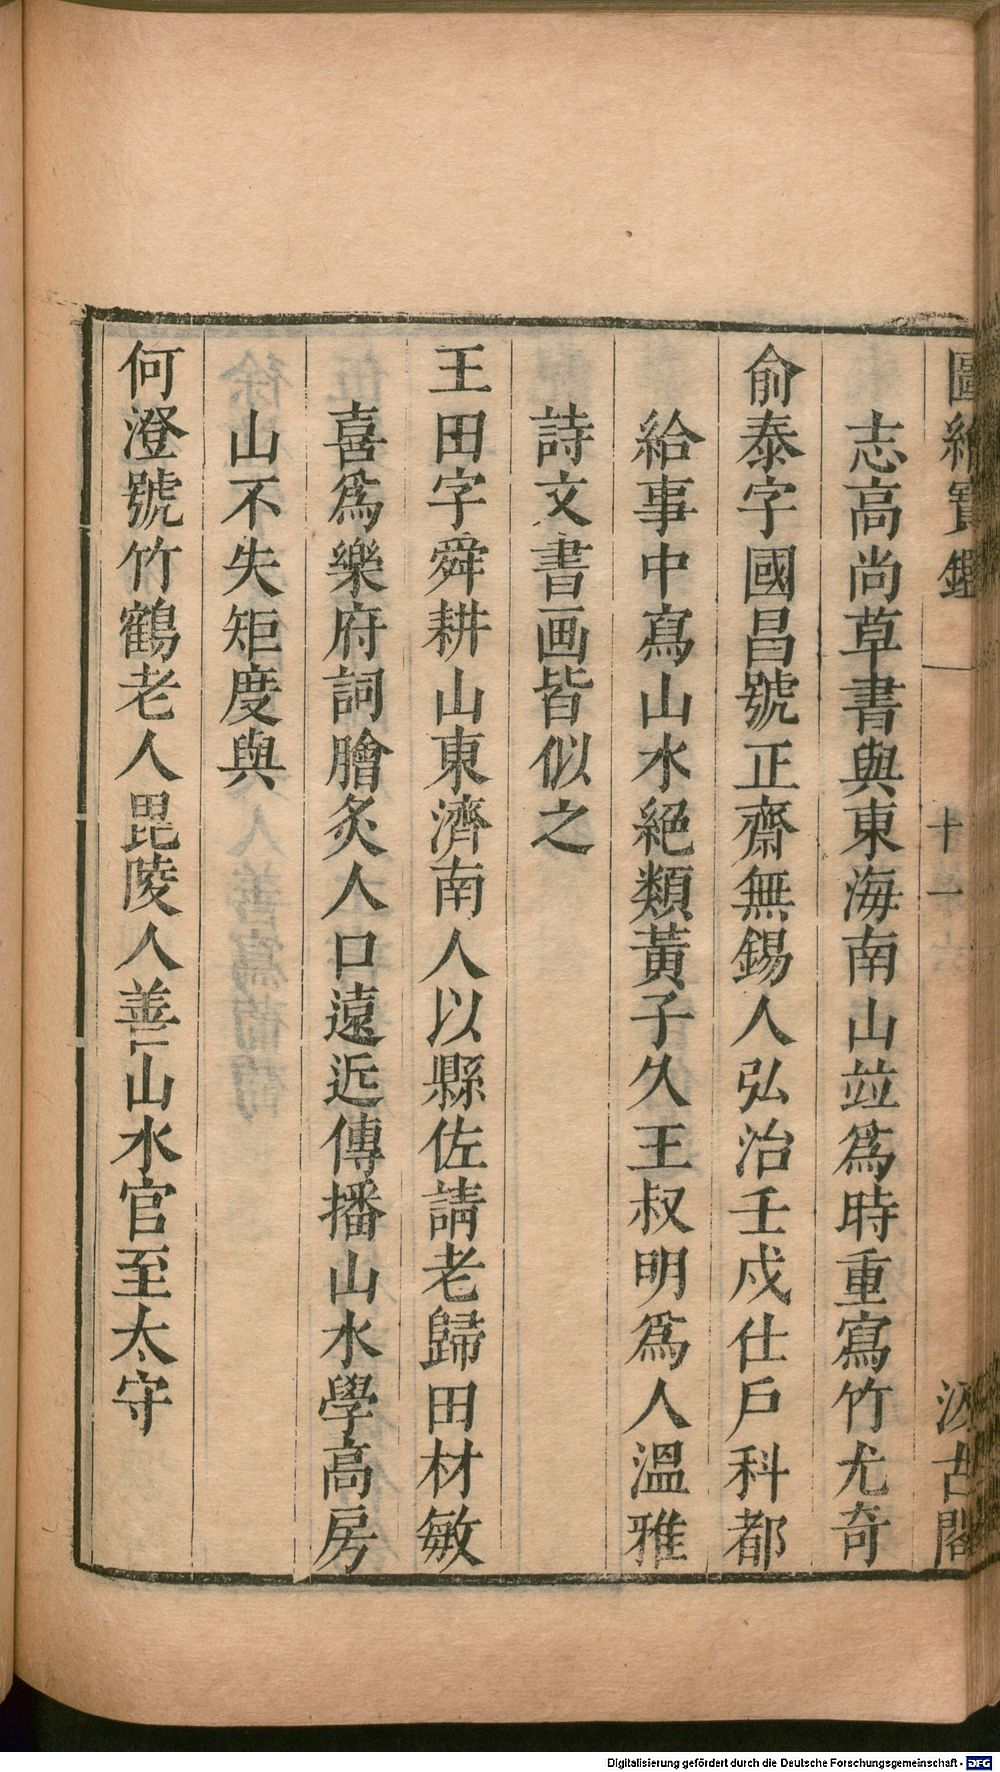 圖繪寶鑑 十一 汲古閣
志高尚草書與東海南山竝爲時重寫竹尤奇
俞泰字國昌號正齋無錫人弘治壬戌仕戶科都
給事中寫山水絕類黃子久王叔明爲人溫雅
詩文書画皆似之
王田字舜耕山東濟南人以縣佐請老歸田材敏
喜爲樂府詞膾炙人口遠近傳播山水學高房
山不失矩度與
何澄號竹鶴老人毘陵人善山水官至太守
Digitalisierung gefördert durch die Deutsche Forschungsgemeinschaft - DFG